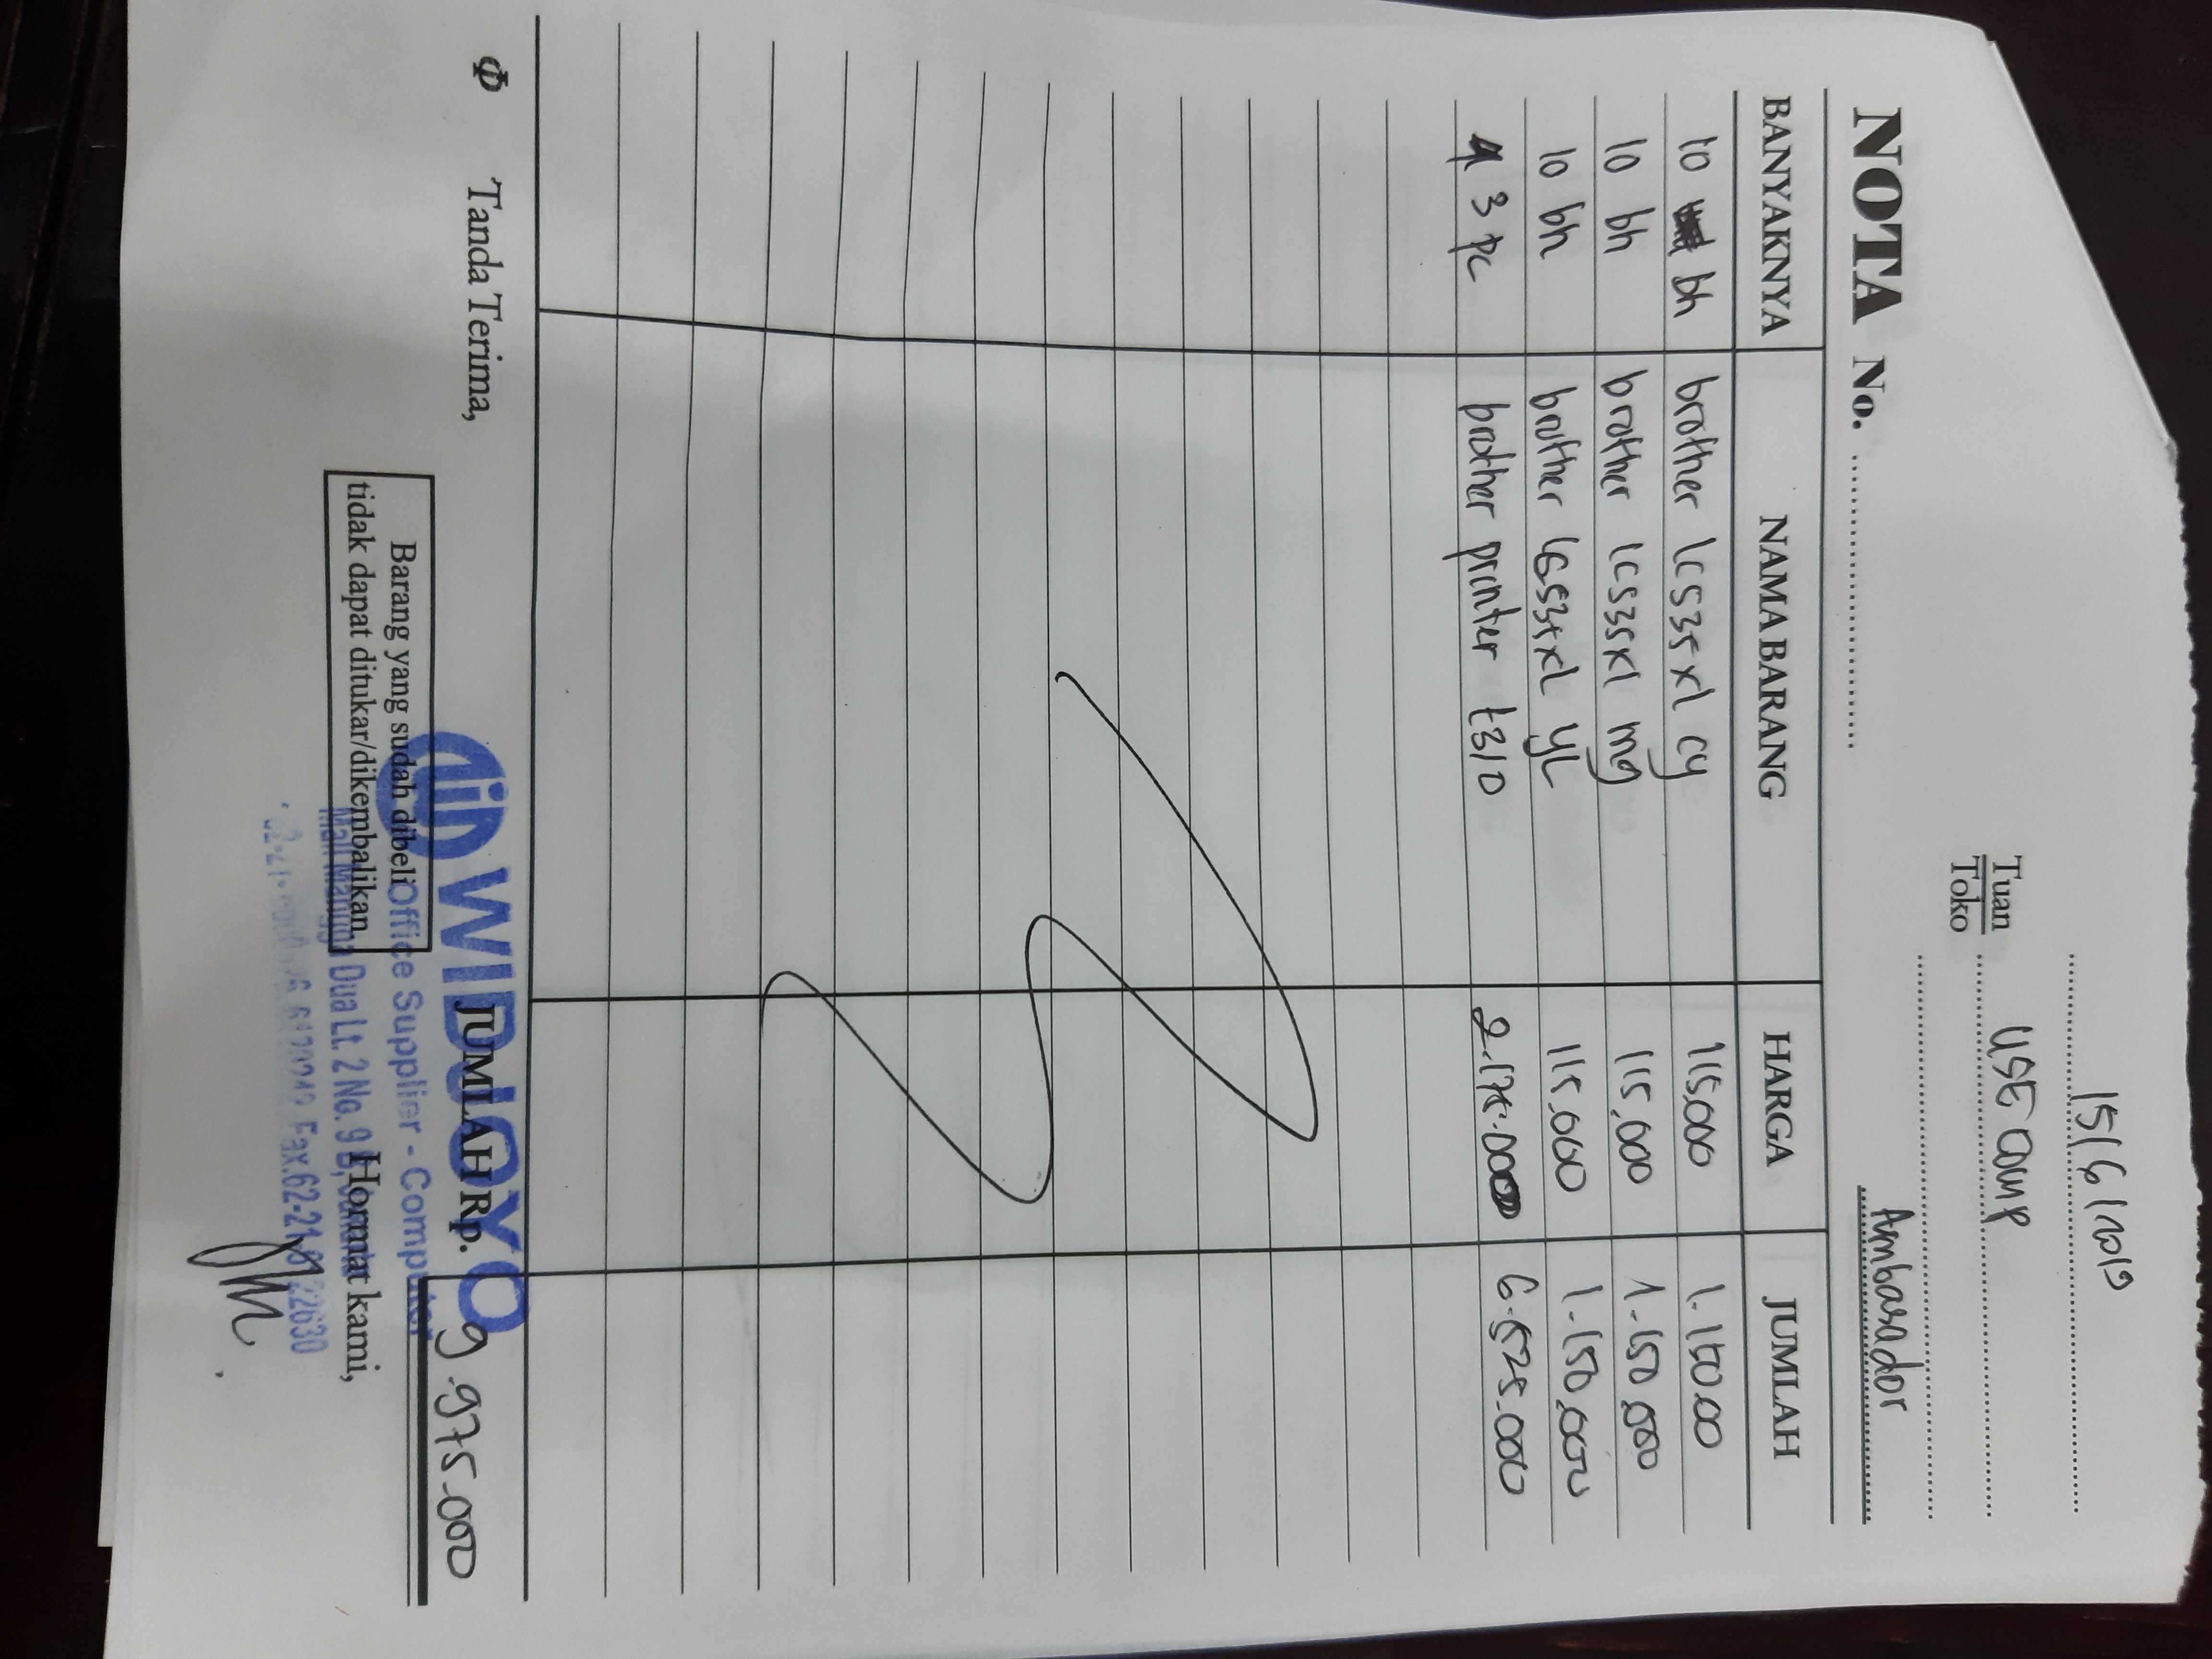 15/6/2019
Tuan
Toko
USE Comp
Ambasador
NOTA No.
BANYAKNYA NAMA BARANG HARGA JUMLAH
10 bh brother lc535xl cy 115,000 1.150.00
10 bh brother lc535xl mg 115,000 1.150.000
10 bh brother lc535xl yl 115,000 1.150.000
3 pc brother printer t310 2.175.000 6.525.000
WIDJOYO
JUMLAH Rp. 9.975.000
Φ Tanda Terima,
Office Supplier - Computer
Barang yang sudah dibeli
tidak dapat ditukar/dikembalikan
Mall Mangga Dua Lt. 2 No. 9 B,
Hormat kami,
Fax.62-21